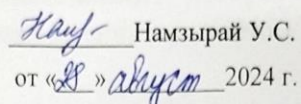 Намзырай У.С.
от «28» август 2024 г.